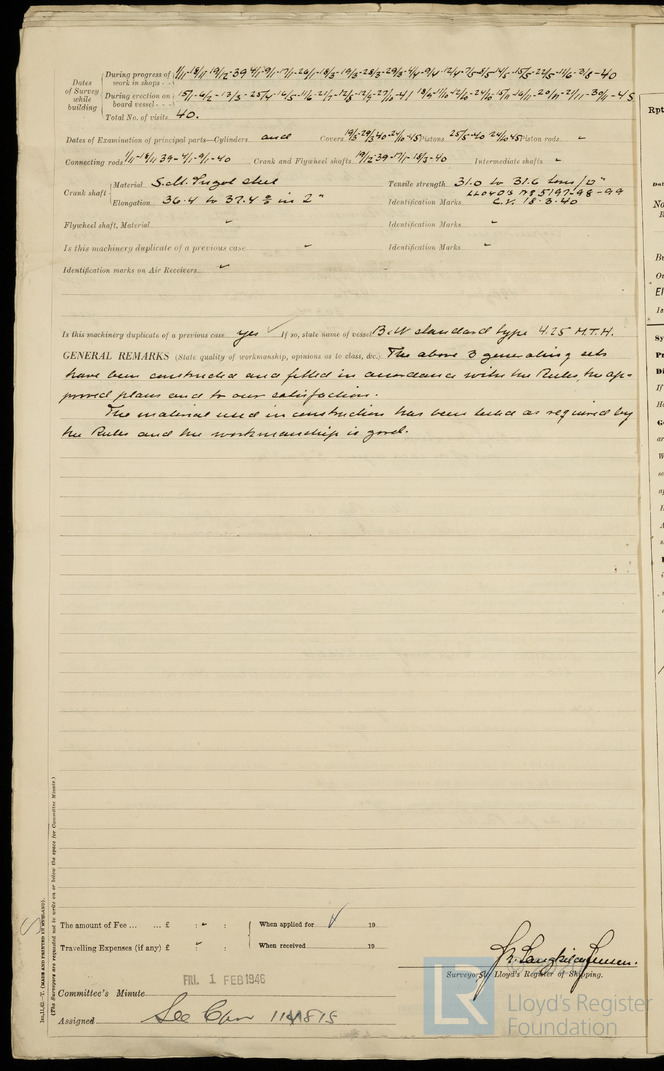 Dates of Survey while building
During progress of work in shops - - 1/11-18/11-19/12-39 4/1-9/1-17/1-26/1-18/3-19/3-28/3-29/3-4/4-9/4-12/4-7/5-8/5-14/5-15/5-22/5-11/6-3/8-40
During erection on board vessel - - - 15/1-6/2-13/3-25/4-16/5-11/6-21/7-12/8-12/9-27/10-41
Total No. of visits 40.
Dates of Examination of principal parts—Cylinders and Covers 19/3-29/3 40-24/10 45 Pistons 25/5-40 24/10 45 Piston rods
Connecting rods 1/11-18/11 39-4/1-9/1-40 Crank and Flywheel shafts 19/12 39-17/1-18/3-40 Intermediate shafts
Crank shaft Material S.M. Ingot steel Tensile strength 31.0 to 31.6 tons/□"
Elongation 36.4 to 37.4 % in 2" Identification Marks LLOYDS No 5197-98-99
18.3.40
Flywheel shaft, Material Identification Marks
Is this machinery duplicate of a previous case Identification Marks
Identification marks on Air Receivers
Is this machinery duplicate of a previous case yes If so, state name of vessel B&W standard type 425 M.T.H.
GENERAL REMARKS (State quality of workmanship, opinions as to class, &c.) The above 3 generating sets
have been constructed and fitted in accordance with the Rules, the ap-
proved plans and to our satisfaction.
The material used in construction has been tested as required by
the Rules and the workmanship is good.
1m,11,42—T. (MADE AND PRINTED IN ENGLAND).
(The Surveyors are requested not to write on or below the space for Committee Minute.)
The amount of Fee ... ... £ : : When applied for 19
Travelling Expenses (if any) £ : : When received 19
Surveyors Lloyd's Register of Shipping.
FRI. 1 FEB 1946
Committee's Minute
Assigned See
Lloyd's Register
Foundation
Rpt